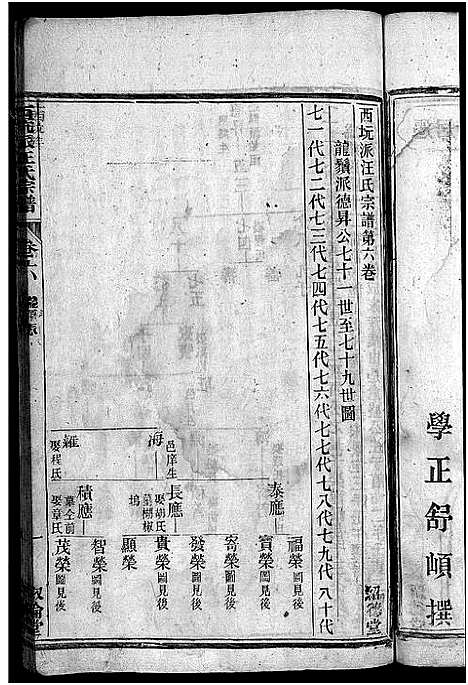 學正舒頔撰
西坑派汪氏宗譜第六卷
龍鬚派德昇公七十一世至七十九世圖
七一代七二代七三代七四代七五代七六代七七代七八代七九代八十代
泰應
福榮圖見後
寶榮圖見後
寄榮圖見後
海
邑庠生
長應
娶胡氏
墓楜椒塢
發榮圖見後
貴榮圖見後
顯榮
羅
娶程氏
積應
墓全前
娶章氏
智榮圖見後
茂榮圖見後
汪氏宗譜
卷六